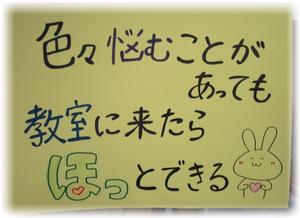 色々悩むことが
あっても
教室に来たら
ほっとできる